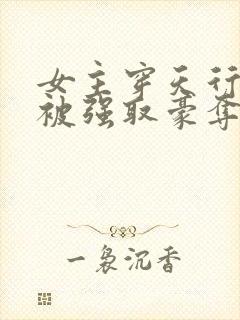 女主穿天行
被强取豪夺
一袅沉香